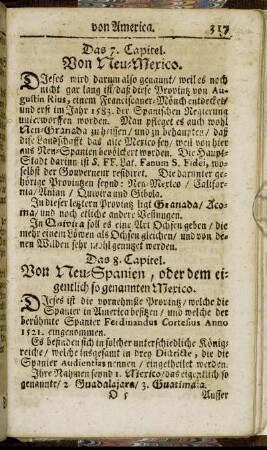 von America. 317
Das 7. Capitel.
Von Neu-Mexico.
DIeses wird darum also genannt / weil es noch
nicht gar lang ist / daß diese Provintz von Au-
gustin Rius, einem Franciscaner-Mönch entdecket /
und erst im Jahr 1583. der Spanischen Regierung
unterworffen worden. Man pfleget es auch wohl
Neu-Granada zu heissen / und zu behaupten / daß
diese Landschafft das alte Mexico sey / weil von hier
aus Neu-Spanien bevölckert worden. Die Haupt-
Stadt darinn ist S. FF. Lat. Fanum S. Fidei, wo-
selbst der Gouverneur residiret. Die darunter ge-
hörige Provintzen seynd / Neu-Mexico / Califor-
nia / Anian / Quivira und Cibola.
In dieser letztern Provintz ligt Granada / Aco-
ma / und noch etliche andere Vestungen.
In Quivira soll es eine Art Ochsen geben / die
mehr einem Löwen als Ochsen gleichen / und von de-
nen Wilden sehr wohl genutzet werden.
Das 8. Capitel.
Von Neu-Spanien, oder dem ei-
gentlich so genannten Mexico.
DIeses ist die vornehmste Provintz / welche die
Spanier in America besitzen / und welche der
berühmte Spanier Ferdinandus Cortesius Anno
1521. eingenommen.
Es befinden sich in solcher unterschiedliche König-
reiche / welche insgesamt in drey Districte, die die
Spanier Audientias nennen / eingetheilet werden.
Ihre Nahmen seynd 1. Mexico / das eigentlich so
genannte / 2 Guadalajara / 3. Guatimala.
O 5 Ausser